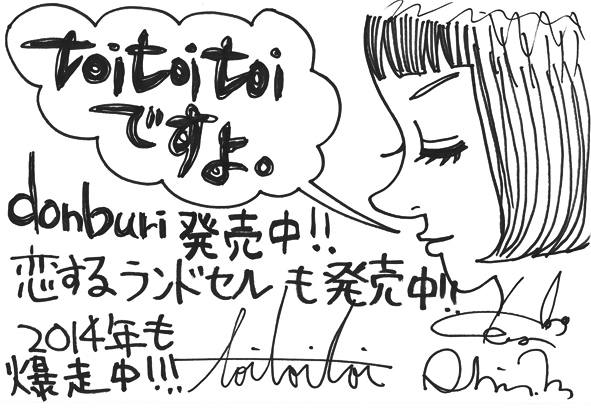 toitoitoi
ですよ。
donburi 発売中!!
恋するランドセルも発売中!!
2014年も
爆走中!!!
toitoitoi